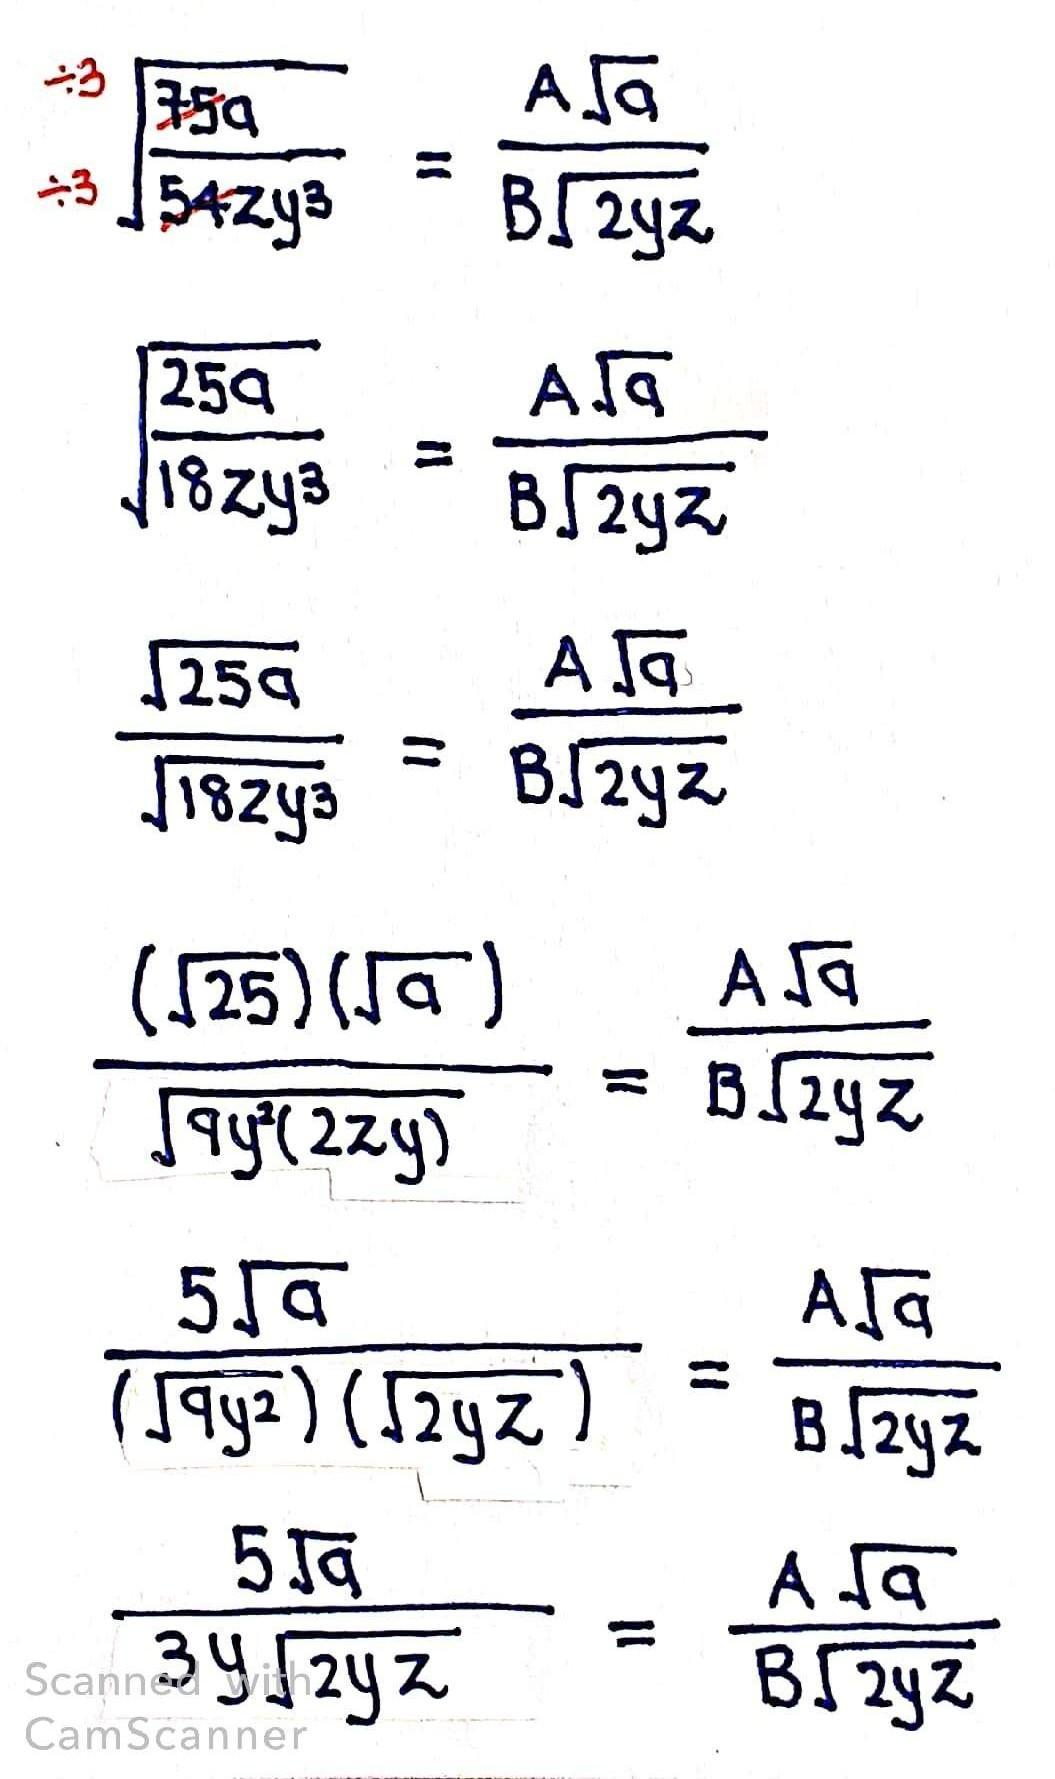 ÷3 √(75a / 54zy³) = A√a / B√2yz
÷3
√(25a / 18zy³) = A√a / B√2yz
√25a / √18zy³ = A√a / B√2yz
(√25)(√a) / √9y²(2zy) = A√a / B√2yz
5√a / (√9y²)(√2yz) = A√a / B√2yz
5√a / 3y√2yz = A√a / B√2yz
Scanned with
CamScanner